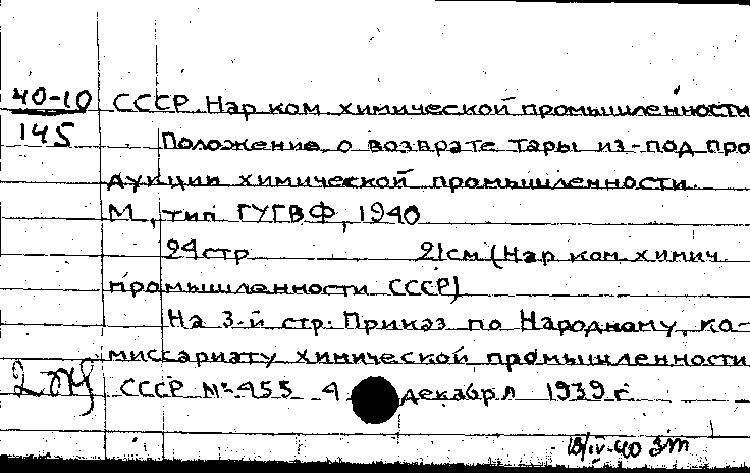 40-10 СССР. Нар ком химической промышленности
145 Положение о возврате тары из-под про
дукции химической промышленности.
М., тип ГУГВФ, 1940
24 стр 21 см (Нар ком химич
промышленности СССР)
На 3-й стр: Приказ по Народному ко-
миссариату химической промышленности
СССР №455 4 декабря 1939 г.